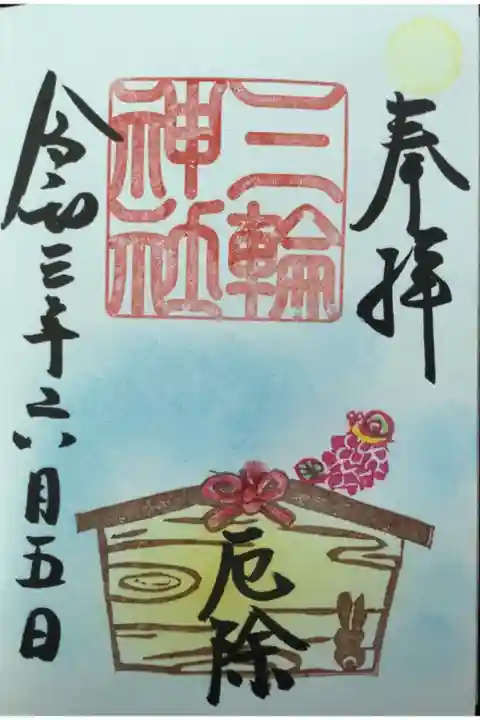 奉拝
三輪
神社
厄除
令和三年六月五日